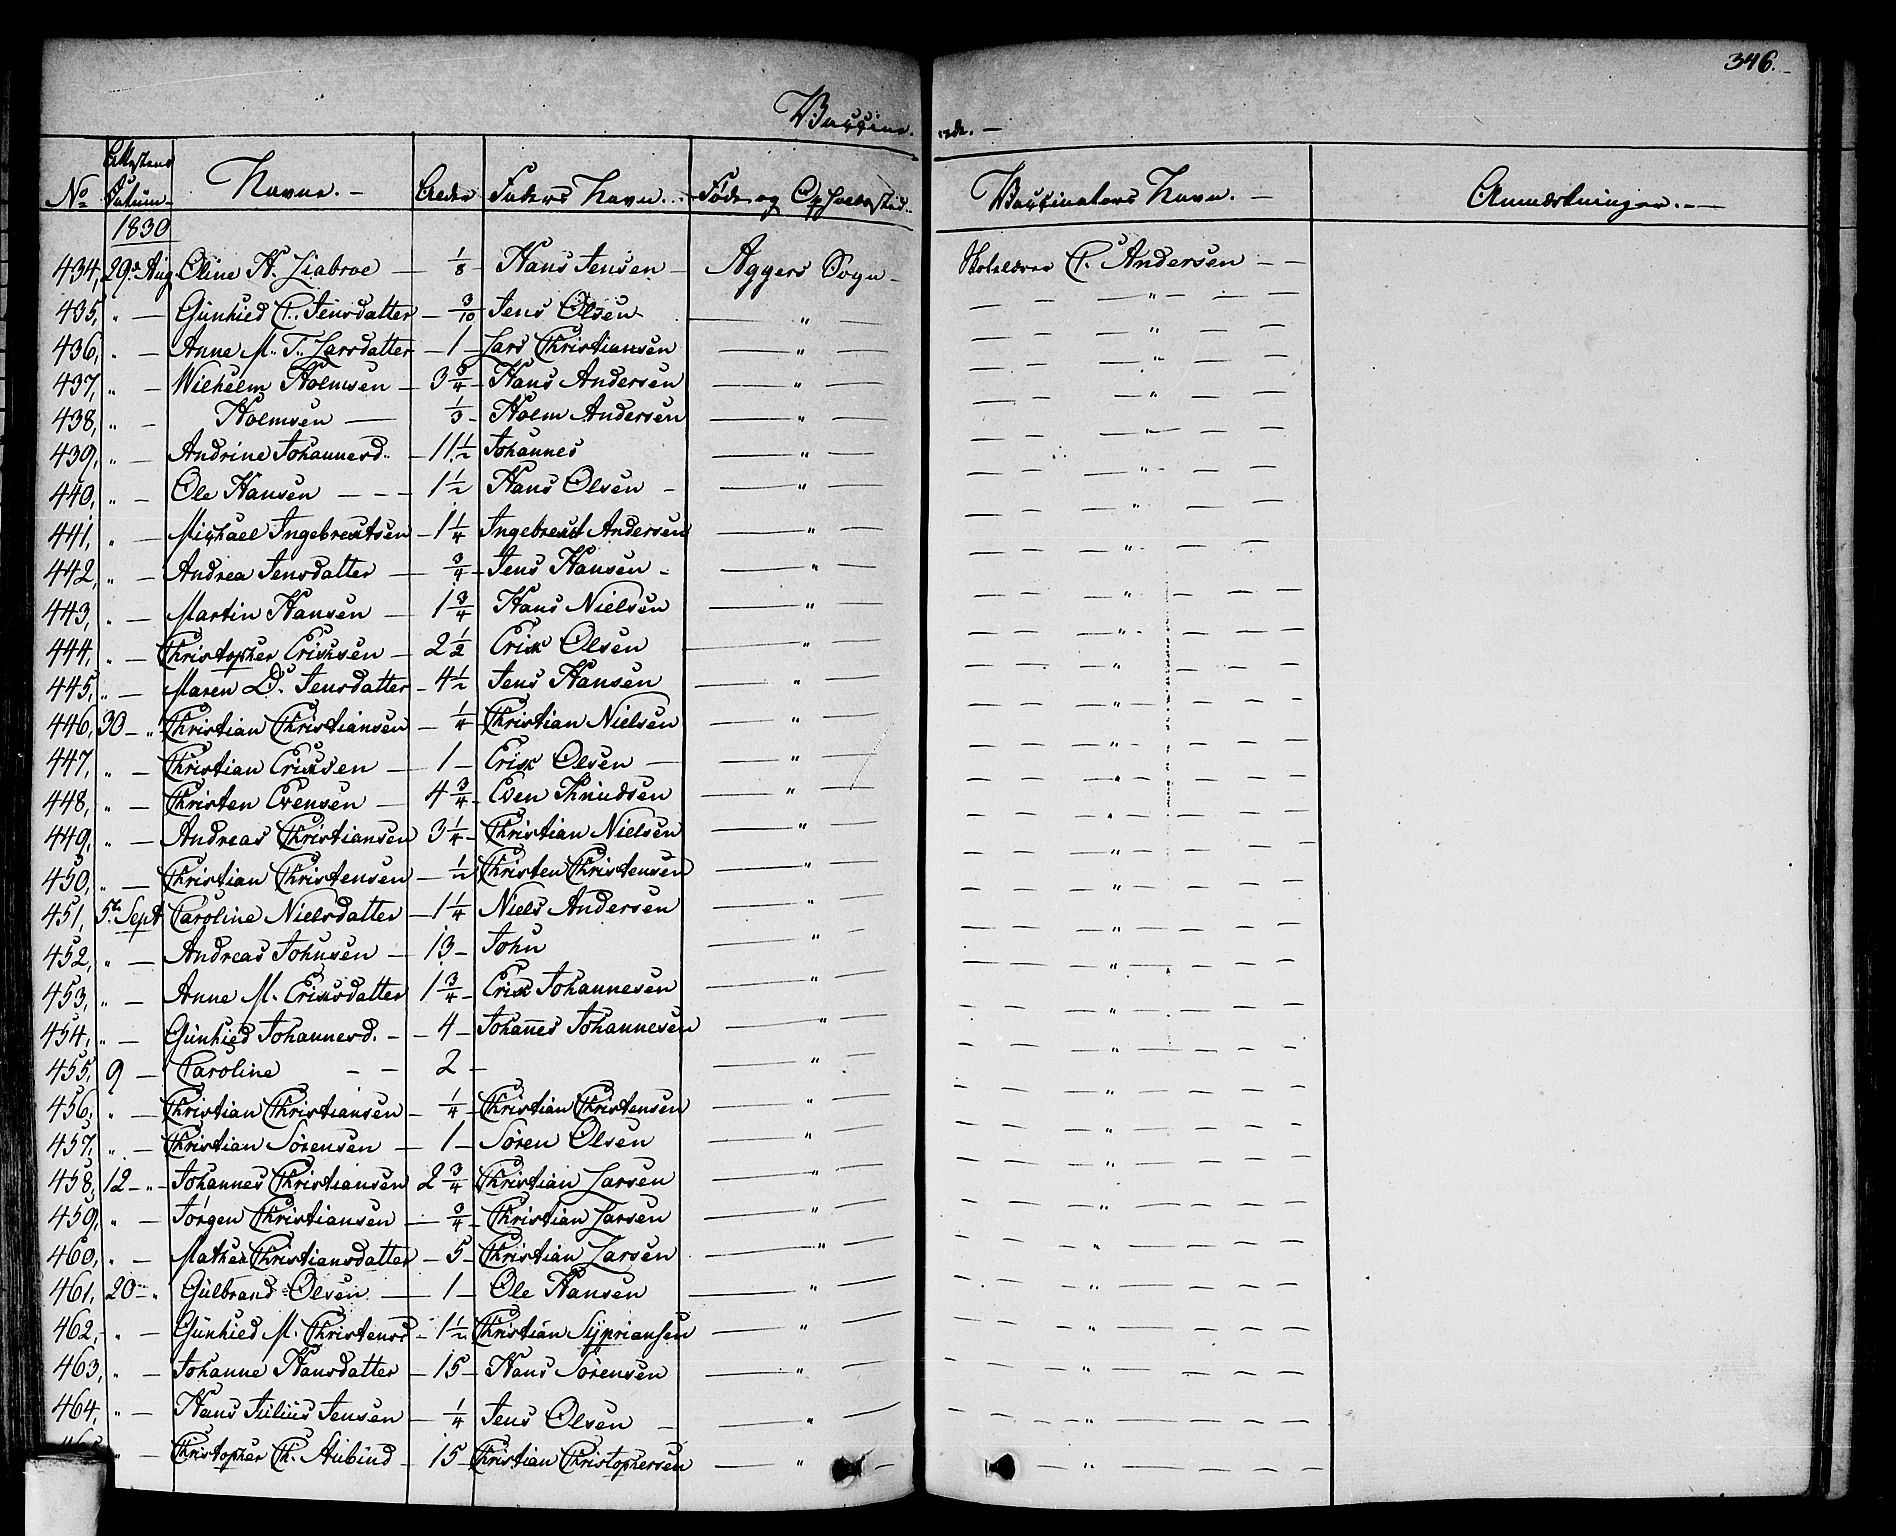 346.
Vaccine- rede. —
No Attestens Datum Navne. — Alder Faders Navn. Føde og Opholdssted. Vaccinateurs Navn. — Anmærkninger. —
1830
434, 29de Aug. Oline H. Liabroe — 1/8 — Hans Jensen — Aggers Sogn — Skolelærer C. Andersen — —
435, " — Gunhied C. Jensdatter — 3/10 Jens Olsen — " — — — " — — —
436, " — Anne M. T. Larsdatter — 1 — Lars Christiansen — " — — — " — — —
437, " — Wilhelm Holmsen — 3 3/4 — Hans Andersen — " — — — " — — —
438, " — Holmsen — 1/3 — Holm Andersen — " — — — " — — —
439, " — Andrine Johannesd. — 11 1/2 Johannes — " — — — " — — —
440, " — Ole Hansen — — — 1 1/2 Hans Olsen — — " — — — " — — —
441, " — Michael Ingebrectsen — 1 1/4 Ingebrect Andersen — " — — — " — — —
442, " — Andrea Jensdatter — 3/4 — Jens Hansen — — " — — — " — — —
443, " — Martin Hansen — 1 3/4 Hans Nielsen — " — — — " — — —
444, " — Christopher Ericksen — 2 1/2 Erick Olsen — " — — — " — — —
445, " — Maren D. Jensdatter — 4 1/2 Jens Hansen — " — — — " — — —
446, 30 — " Christian Christiansen — 1/4 Christian Nielsen — " — — — " — — —
447, " — Christian Ericksen — 1 — Erick Olsen — — " — — — " — — —
448, " — Christen Evensen — 4 3/4 — Even Knudsen — " — — — " — — —
449, " — Andreas Christiansen 3 1/4 — Christian Nielsen — " — — — " — — —
450, " — Christian Christensen — 1/2 Christen Christensen — " — — — " — — —
451, 5te Sept Caroline Nielsdatter — 1 1/4 Niels Andersen — " — — — " — — —
452, " — Andreas Johnsen — 13 — John — " — — — " — — —
453, " — Anne M. Ericksdatter 1 3/4 — Erick Johannesen — " — — — " — — —
454, " — Gunhied Johannesd. — — 4 — Johannes Johannesen — " — — — " — — —
455, 9 — Caroline — — 2 — — " — — — " — — —
456, " — Christian Christiansen — 1/4 — Christian Christensen — " — — — " — — —
457, " — Christian Sørensen — 1 — Søren Olsen — " — — — " — — —
458, 12 — " — Johannes Christiansen 2 3/4 Christian Larsen — " — — — " — — —
459, " — Jørgen Christiansen — 3/4 — Christian Larsen — " — — — " — — —
460, " — Mathea Christiansdatter — 5 — Christian Larsen — " — — — " — — —
461, 20 — " Gulbrand Olsen — 1 — Ole Hansen — " — — — " — — —
462, " — Gunhied M. Christensd — 1 1/2 Christian Syprianssen — " — — — " — — —
463, " — Johanne Hansdatter — 15 — Hans Sørensen — " — — — " — — —
464, " — Hans Julius Jensen — 1/4 Jens Olsen — — " — — — " — — —
465 " — Christopher Ch. Aubind — 15 — Christian Christophersen — " — — — " — — —